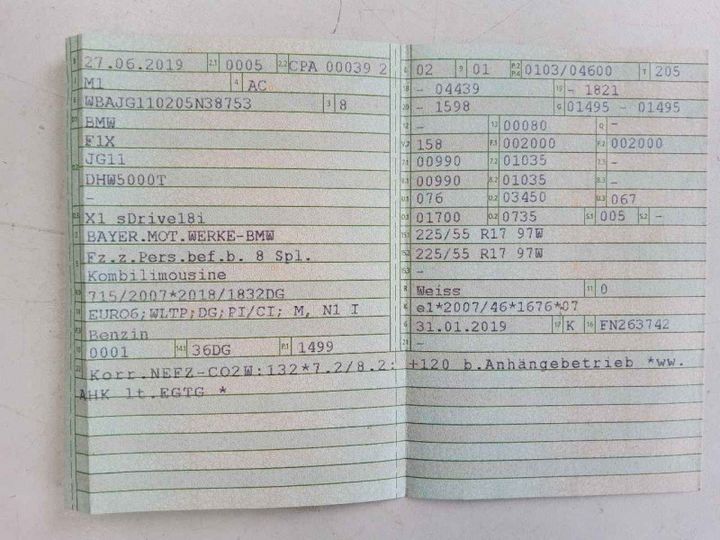 27.06.2019 2.1 0005 2.2 CPA 00039 2
M1 4 AC
WBAJG110205N38753 3 8
BMW
F1X
JG11
DHW5000T
-
X1 sDrive18i
BAYER.MOT.WERKE-BMW
Fz.z.Pers.bef.b. 8 Spl.
Kombilimousine
715/2007*2018/1832DG
EURO6;WLTP;DG;PI/CI; M, N1 I
Benzin
0001 14.1 36DG P.1 1499
Korr.NEFZ-CO2W:132*7.2/8.2: +120 b.Anhängebetrieb *ww.
AHK lt.EGTG *
02 9 01 P.2 P.4 0103/04600 T 205
- 04439 19 - 1821
- 1598 G 01495 - 01495
- 13 00080 Q -
V.7 158 F.1 002000 F.2 002000
00990 7.2 01035 7.3 -
00990 8.2 01035 8.3 -
U.1 076 U.2 03450 U.3 067
O.1 01700 O.2 0735 S.1 005 S.2 -
15.1 225/55 R17 97W
15.2 225/55 R17 97W
15.3 -
R Weiss 11 0
K e1*2007/46*1676*07
6 31.01.2019 17 K 16 FN263742
21 -